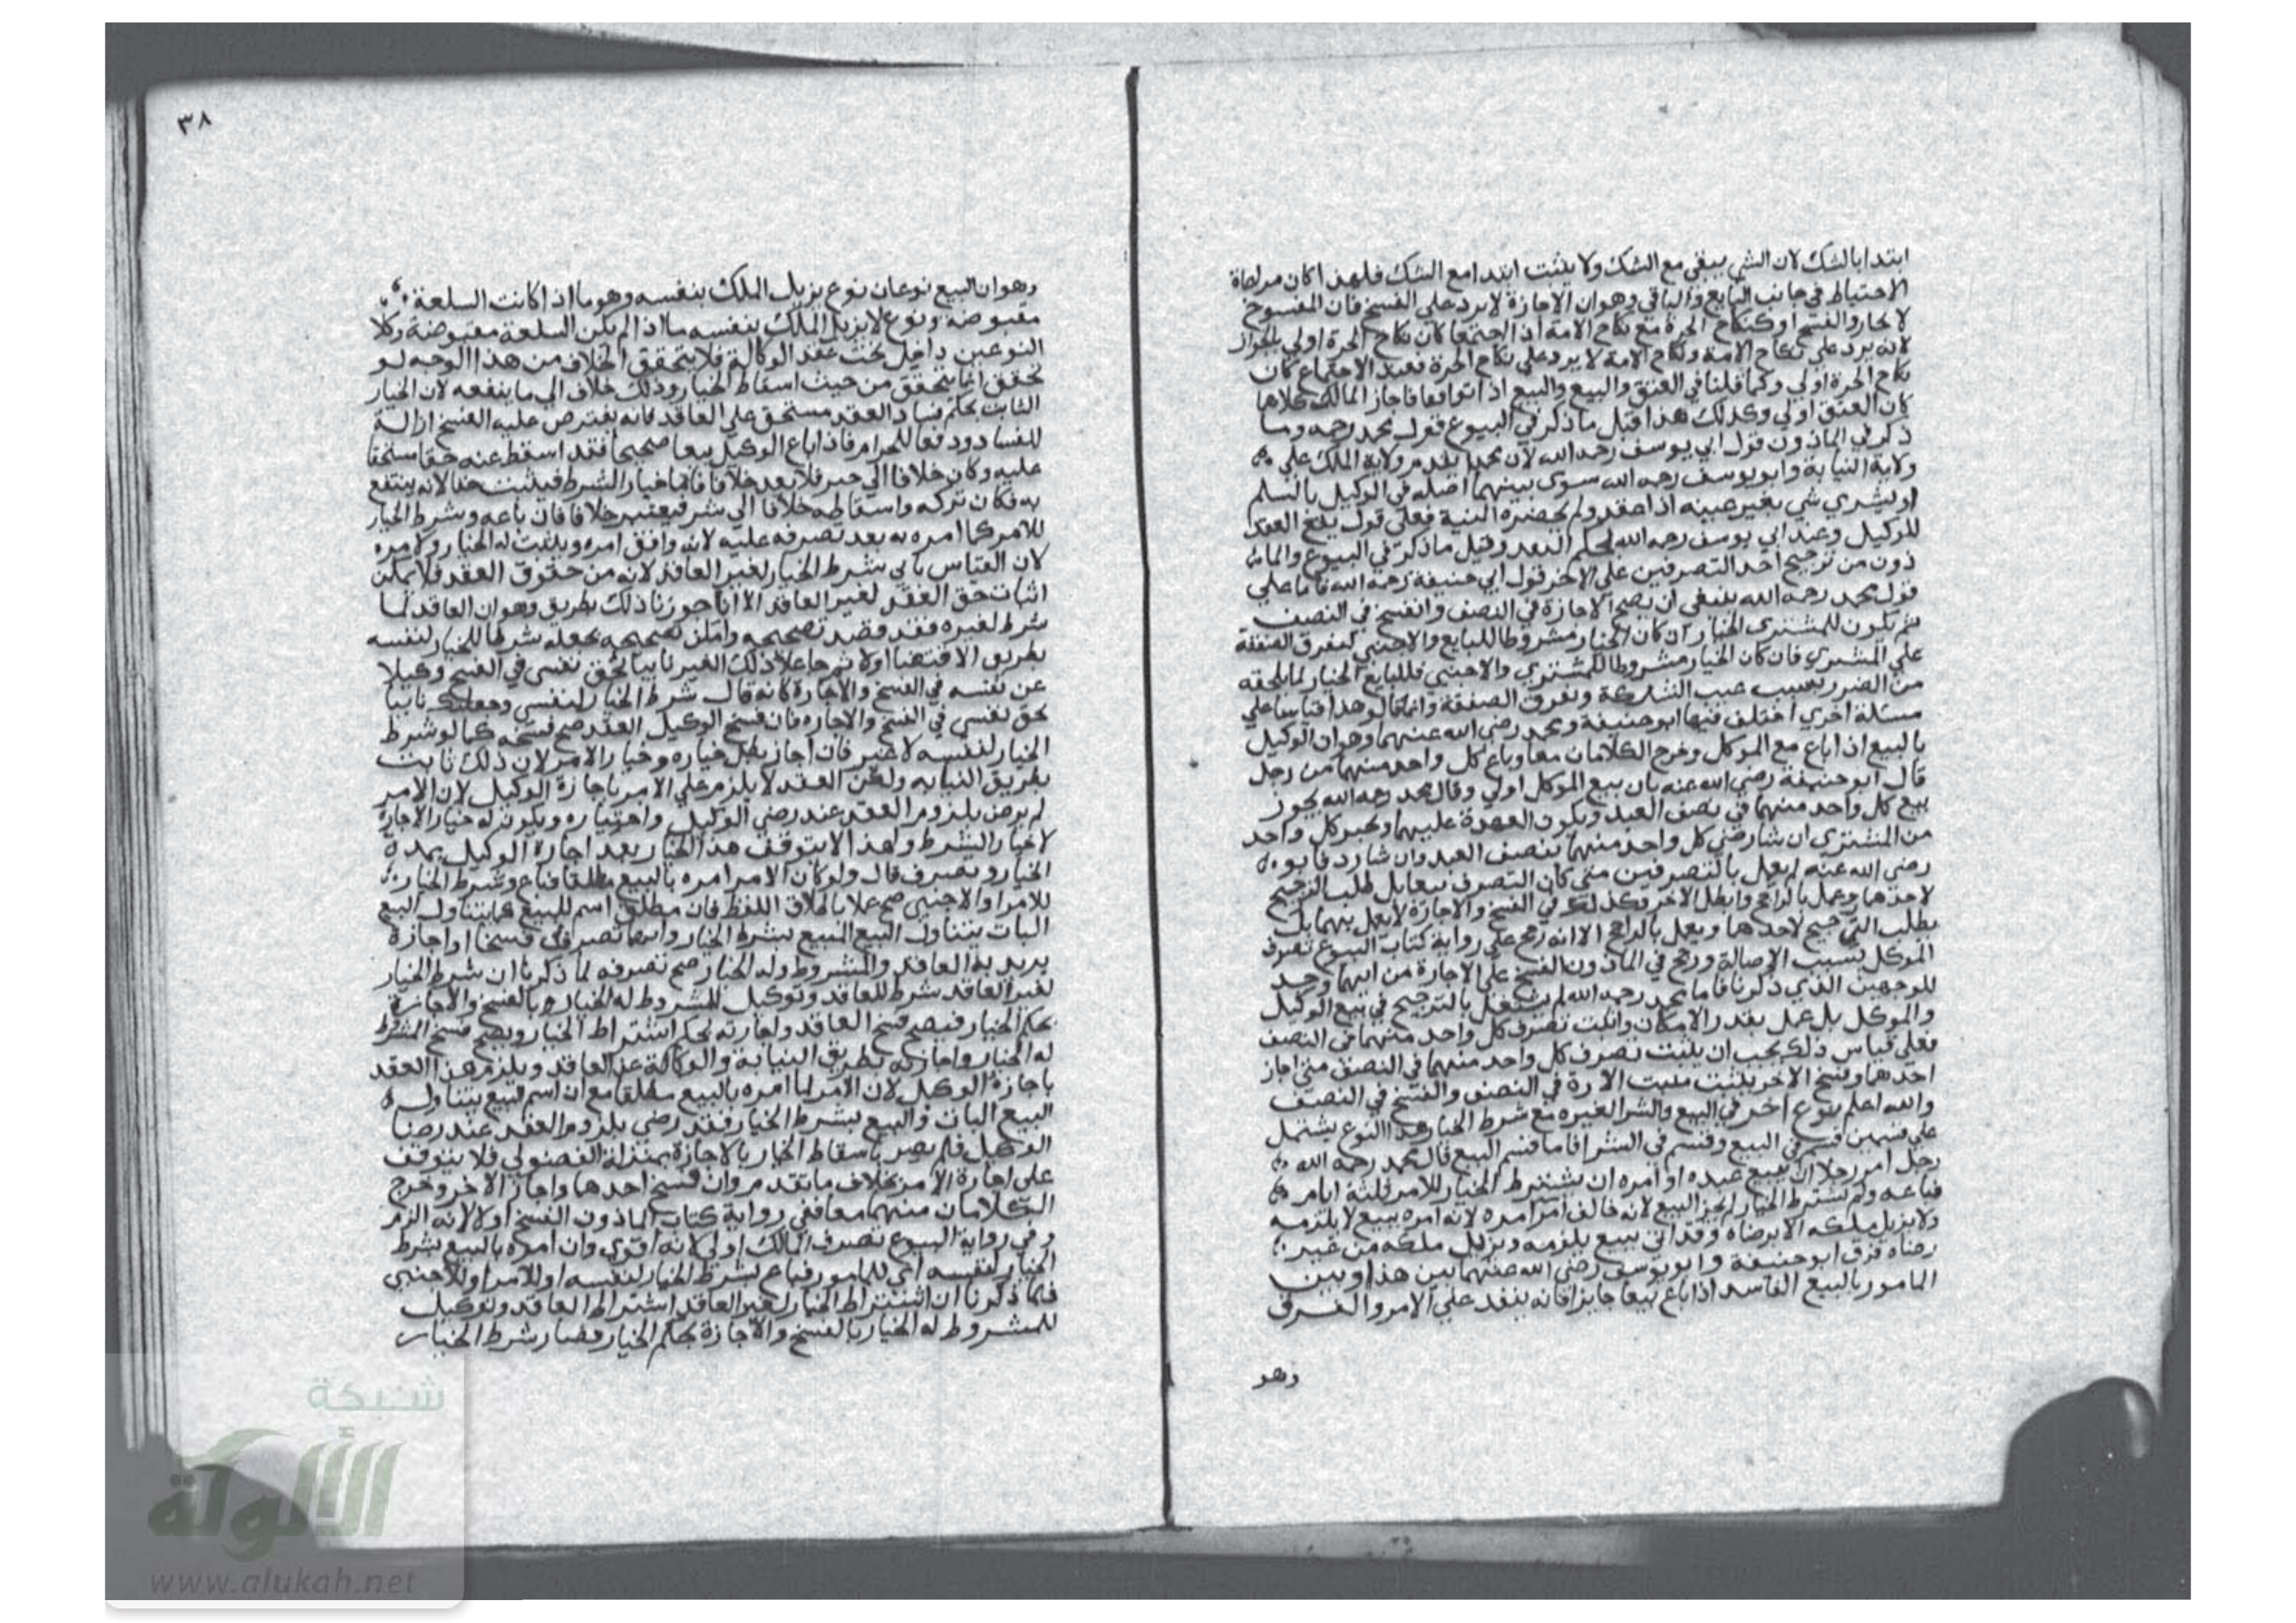 ابتدا بالشك لان الشي يبقى مع الشك ولا يثبت ابتدا مع الشك فلهذا كان مراعاة
الاحتياط في جانب البايع والباقي وهو ان الاجازة لا يرد على الفسخ فان المفسوخ
لا يجاز والفسخ او كنكاح الحرة مع نكاح الامة اذا اجتمعا كان نكاح الحرة اولى بالجواز
لانه يرد على نكاح الامة ونكاح الامة لا يرد على نكاح الحرة فعند الاجتماع كان
نكاح الحرة اولي وكما قلنا في العتق والبيع والبيع اذا توافقا فاجاز المالك كلاها
كان العتق اولي وكذلك هذا قيل ما ذكر في البيوع قول محمد رحمه وما
ذكر في الماذون قول ابي يوسف رحمه الله لان محمدا يقدم ولاية الملك علي
ولاية النيابة وابو يوسف رحمه الله سوى بينهما اصله في الوكيل بالسلم
او يشري شي بغير عينه اذا عقد ولم يحضره النية فعلى قول يقع العقد
للوكيل وعند ابي يوسف رحمه الله يحكم النقد وقيل ما ذكر في البيوع والما
ذون من ترجيح احد التصرفين على الاخر قول ابي حنيفة رحمه الله فاما على
قول محمد رحمه الله ينبغي ان يصح الاجازة في النصف وانفسخ في النصف
ثم يكون للمشتري الخيار ان كان الخيار مشروطا للبايع والاجنبي لتفرق الصفقة
علي المشتري فان كان الخيار مشروطا للمشتري والاجنبي فللبايع الخيار لما يلحقه
من الضرر بسبب عيب الشركة وتفرق الصفقة وانما قالو هذا قياسا علي
مسئلة اخري اختلف فيها ابو حنيفة ومحمد رضي الله عنهما وهو ان الوكيل
بالبيع اذا باع مع الموكل وخرج الكلامان معا وباع كل واحد منهما من رجل
قال ابو حنيفة رضي الله عنه بان بيع الموكل اولي وقال محمد رحمه الله يجوز
بيع كل واحد منهما في نصف العبد ويكون العهدة عليهما ويخير كل واحد
من المشتري ان شا رضي كل واحد منهما بنصف العبد وان شا رد فابو
رضي الله عنه لم يعمل بالتصرفين متى كان التصرف بيعا بل طلب الترجيح
لاحدهما وعمل بالراجح وابطل الاخر فكذلك في الفسخ والاجازة لا يعمل بهما بل
يطلب الترجيح لاحدهما ويعمل بالراجح الا انه رجح على رواية كتاب البيوع تصرف
الموكل بسبب الاصالة ورجح في الماذون الفسخ على الاجازة من ايهما وجد
للوجهين الذي ذكرنا فاما محمد رحمه الله لم يشتغل بالترجيح في بيع الوكيل
والموكل بل عمل بقدر الامكان واثبت تصرف كل واحد منهما في النصف
فعلى قياس ذلك يجب ان يثبت تصرف كل واحد منهما في النصف متى اجاز
احدهما وفسخ الاخر يثبت الاجازة في النصف والفسخ في النصف
والله اعلم نوع اخر في البيع والشرا لغيره مع شرط الخيار هذا النوع يشتمل
على قسمين قسم في البيع وقسم في الشرا فاما قسم البيع قال محمد رحمه الله
رجل امر رجلا ان يبيع عبده او امره ان يشترط الخيار للامر ثلثة ايام
فباعه ولم يشترط الخيار لم يجز البيع لانه خالف امر امره لانه امره ببيع لا يلزمه
ولا يزيل ملكه الا برضاه وقد اتى ببيع يلزمه ويزيل ملكه من غير
رضاه فرق ابو حنيفة وابو يوسف رضي الله عنهما بين هذا وبين
المامور بالبيع الفاسد اذا باع بيعا جايزا فانه ينفذ علي الامر والفرق
وهو
٣٨
وهو ان البيع نوعان نوع يزيل الملك بنفسه وهو ما اذا كانت السلعة
مقبوضة ونوع لا يزيل الملك بنفسه ما اذا لم يكن السلعة مقبوضة وكلا
النوعين داخل تحت عقد الوكالة فلا يتحقق الخلاف من هذا الوجه لو
تحقق انما يتحقق من حيث اسقاط الخيار وذلك خلاف الي ما ينفعه لان الخيار
الثابت بحكم فساد العقد مستحق علي العاقد فانه يفترض عليه الفسخ ازالة
للفساد ودفعا للحرام فاذا باع الوكيل بيعا صحيحا فقد اسقط عنه حقا مستحقا
عليه وكان خلافا الي خير فلا يعد خلافا فاما خيار الشرط فيثبت حقا لانه ينتفع
به فكان تركه واسقاطه خلافا الي شر فيعتبر خلافا فان باعه وشرط الخيار
للامر كما امره به بعد تصرفه عليه لانه وافق امره ويثبت له الخيار ولامره
لان القياس يابى شرط الخيار لغير العاقد لانه من حقوق العقد فلا يمكن
اثبات حق العقد لغير العاقد الا انا جوزنا ذلك بطريق وهو ان العاقد لما
شرط لغيره فقد قصد تصحيحه وامكن تصحيحه بجعله شرطا للخيار لنفسه
بطريق الاقتضا اولا ثم جاعلا ذلك الغير نايبا بحق نفسي في الفسخ وكيلا
عن نفسه في الفسخ والاجازة كانه قال شرط الخيار لنفسي وجعلتك نايبا
بحق نفسي في الفسخ والاجازه فان فسخ الوكيل العقد صح فسخه كما لو شرط
الخيار لنفسه لا غير فان اجاز بطل خياره وخيار الامر لان ذلك ثابت
بطريق النيابه ولكن العقد لا يلزم علي الامر باجازة الوكيل لان الامر
لم يرض بلزوم العقد عند رضي الوكيل واختياره ويكون له خيار الاجازة
لا خيار الشرط ولهذا لا يتوقف هذا الخيار بعد اجازة الوكيل بمدة
الخيار وتصرف قال ولو كان الامر امره بالبيع مطلقا فباع وشرط الخيار
للامر او الاجنبي صح عملا باطلاق اللفظ فان مطلق اسم للبيع كما يتناول البيع
البات يتناول البيع بشرط الخيار وايهما تصرف فسخا او اجازة
يريد به العاقد والمشروط وله الخيار صح تصرفه لما ذكرنا ان شرط الخيار
لغير العاقد شرط للعاقد وتوكيل للمشروط له الخيار بالفسخ والاجازة
بحكم الخيار فيصح فسخ العاقد واجازته بحكم اشتراط الخيار ويصح فسخ المشروط
له الخيار واجازته بطريق النيابة والوكالة عن العاقد ويلزم هذا العقد
باجازة الوكيل لان الامر لما امره بالبيع مطلقا مع ان اسم البيع يتناول
البيع البات والبيع بشرط الخيار فقد رضي بلزوم العقد عند رضا
الوكيل فلم يصر باسقاط الخيار بالاجازة بمنزلة الفضولي فلا يتوقف
على اجازة الامر بخلاف ما تقدم وان فسخ احدهما واجاز الاخر وخرج
الكلامان منهما معا ففي رواية كتاب الماذون الفسخ اولا لانه الزم
وفي رواية البيوع تصرف المالك اولي لانه اقوى وان امره بالبيع بشرط
الخيار لنفسه اي للمامور فباع بشرط الخيار لنفسه او للامر او للاجنبي
فلما ذكرنا ان اشتراط الخيار لغير العاقد اشتراط العاقد وتوكيل
للمشروط له الخيار بالفسخ والاجازة بحكم الخيار فصار شرط الخيار
شبكة
الألوكة
www.alukah.net